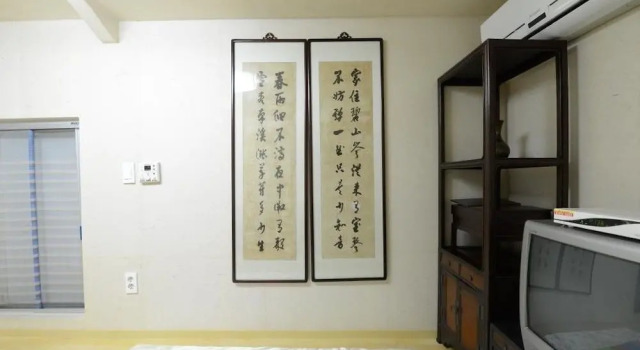 家住碧山岑從來有寶琴
不妨彈一曲只是少知音
春雨細不滴夜中微有聲
雪盡南溪漲草芽多少生